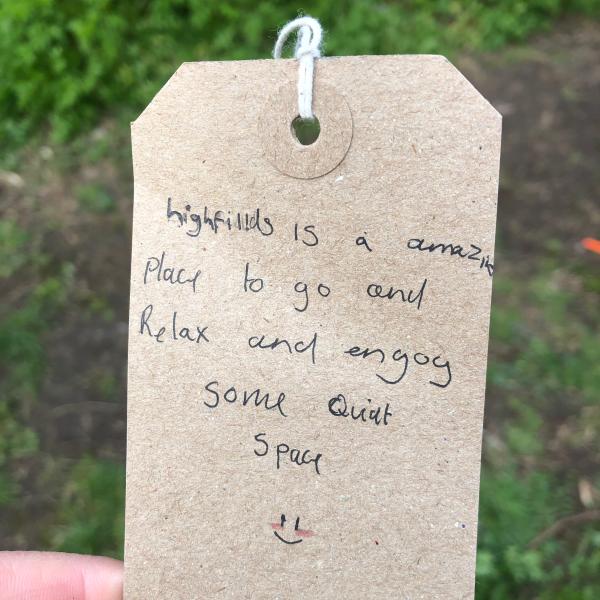 highfillds is a amazin
place to go and
Relax and engoy
some Quiat
Space